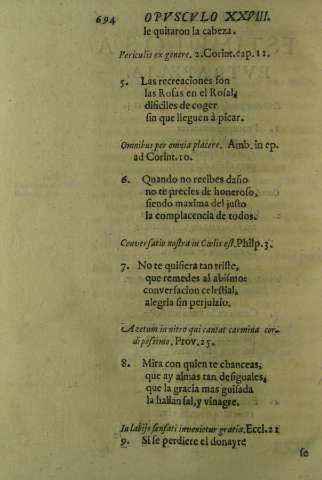 694 OPVSCVLO XXVIII.
le quitaron la cabeza.
Periculis ex genere. 2.Corint.cap.11.
5. Las recreaciones son
las Rosas en el Rosal,
dificiles de coger
sin que lleguen à picar.
Omnibus per omnia placere. Amb. in ep.
ad Corint.10.
6. Quando no recibes daño
no te precies de honeroso,
siendo maxima del justo
la complacencia de todos.
Conversatio nostra in Cœlis est. Philp.3.
7. No te quisiera tan triste,
que remedes al abismo:
conversacion celestial,
alegria sin perjuizio.
Azetum in nitro qui cantat carmina cor-
di pessimo. Prov.25.
8. Mira con quien te chanceas,
que ay almas tan desiguales,
que la gracia mas guisada
la hallan sal, y vinagre.
In labijs sensati invenietur gratia. Eccl.21
9. Si se perdiere el donayre
se